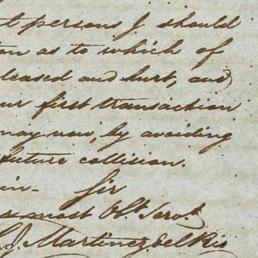 t persons I should
tion as to which of
leased and hurt, and
ur first transaction
may now, by avoiding
future collision.
in- Sir
s most Obt. Servt.
J. Martinez del Rio